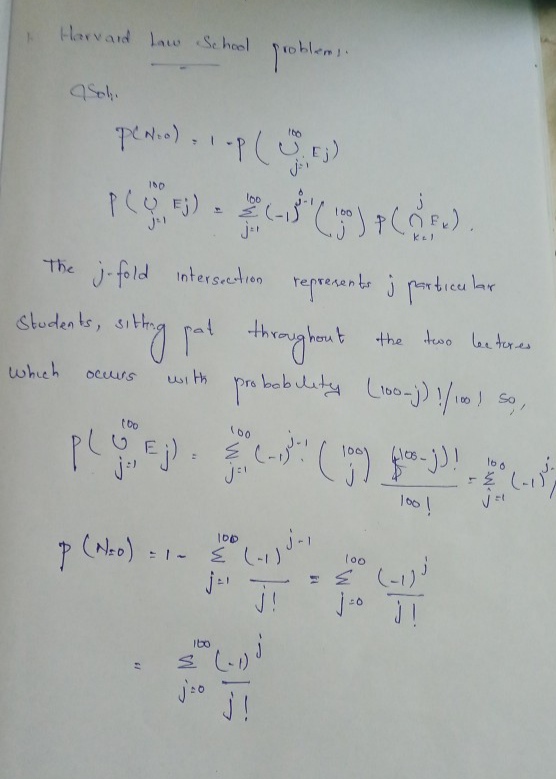 Harvard Law School problem:
Soln.
P(N=0) = 1 - P(∪_{j=1}^{100} Ej)
P(∪_{j=1}^{100} Ej) = Σ_{j=1}^{100} (-1)^{j-1} (100 j) P(∩_{k=1}^{j} Ek).
The j-fold intersection represents j particular
students, sitting pat throughout the two lectures
which occurs with probability (100-j)!/100! so,
P(∪_{j=1}^{100} Ej) = Σ_{j=1}^{100} (-1)^{j-1} (100 j) (100-j)!/100! = Σ_{j=1}^{100} (-1)^{j-}/
P(N=0) = 1 - Σ_{j=1}^{100} (-1)^{j-1}/j! = Σ_{j=0}^{100} (-1)^j/j!
= Σ_{j=0}^{100} (-1)^j/j!